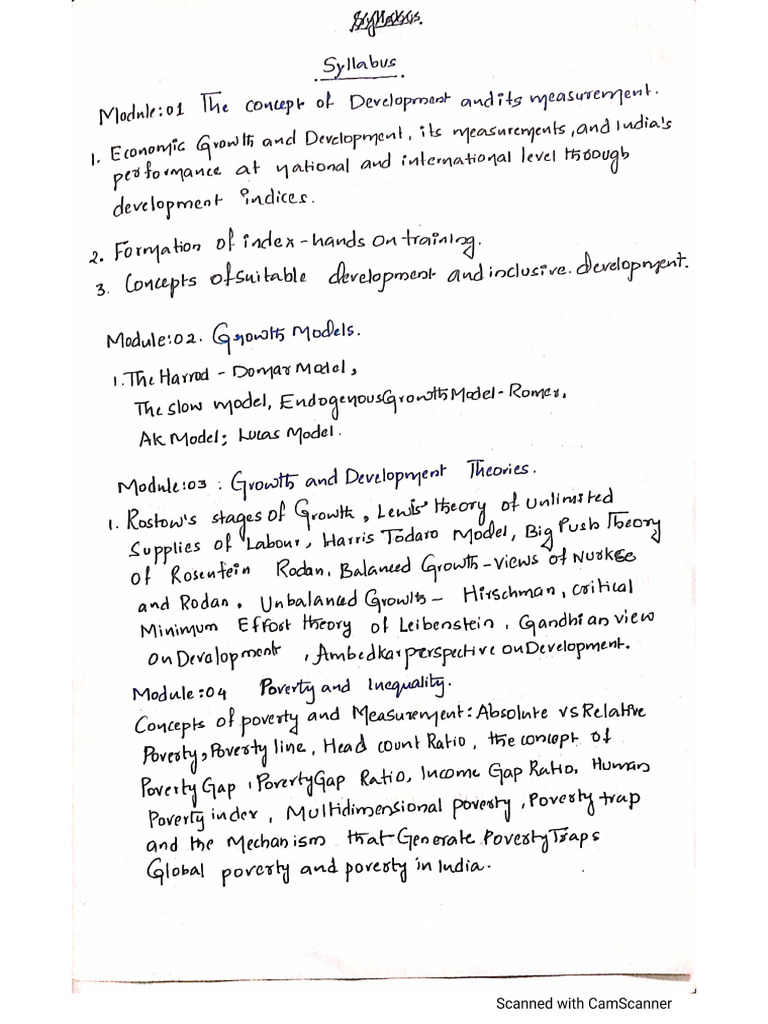 Syllabus.
Syllabus
Module:01 The concept of Development and its measurement.
1. Economic Growth and Development, its measurements, and India's
performance at national and international level through
development indices.
2. Formation of index-hands on training.
3. Concepts of suitable development and inclusive. development.
Module:02. Growth Models.
1. The Harrod - Domar Model,
The slow model, Endogenous Growth Model - Romer,
AK Model; Lucas Model.
Module:03 : Growth and Development Theories.
1. Rostow's stages of Growth, Lewis' theory of unlimited
Supplies of Labour, Harris Todaro Model, Big Push Theory
of Rosenfein Rodan, Balanced Growth - views of Nurkse
and Rodan. Unbalanced Growth - Hirschman, critical
Minimum Effort theory of Leibenstein, Gandhian view
on Devalopment, Ambedkar perspective on Development.
Module:04 Poverty and Inequality.
Concepts of poverty and Measurement: Absolute vs Relative
Poverty, Poverty line, Head count Ratio, the concept of
Poverty Gap, Poverty Gap Ratio, Income Gap Ratio. Human
Poverty index, Multidimensional poverty, Poverty trap
and the Mechanism that Generate Poverty Traps
Global poverty and poverty in India.
Scanned with CamScanner